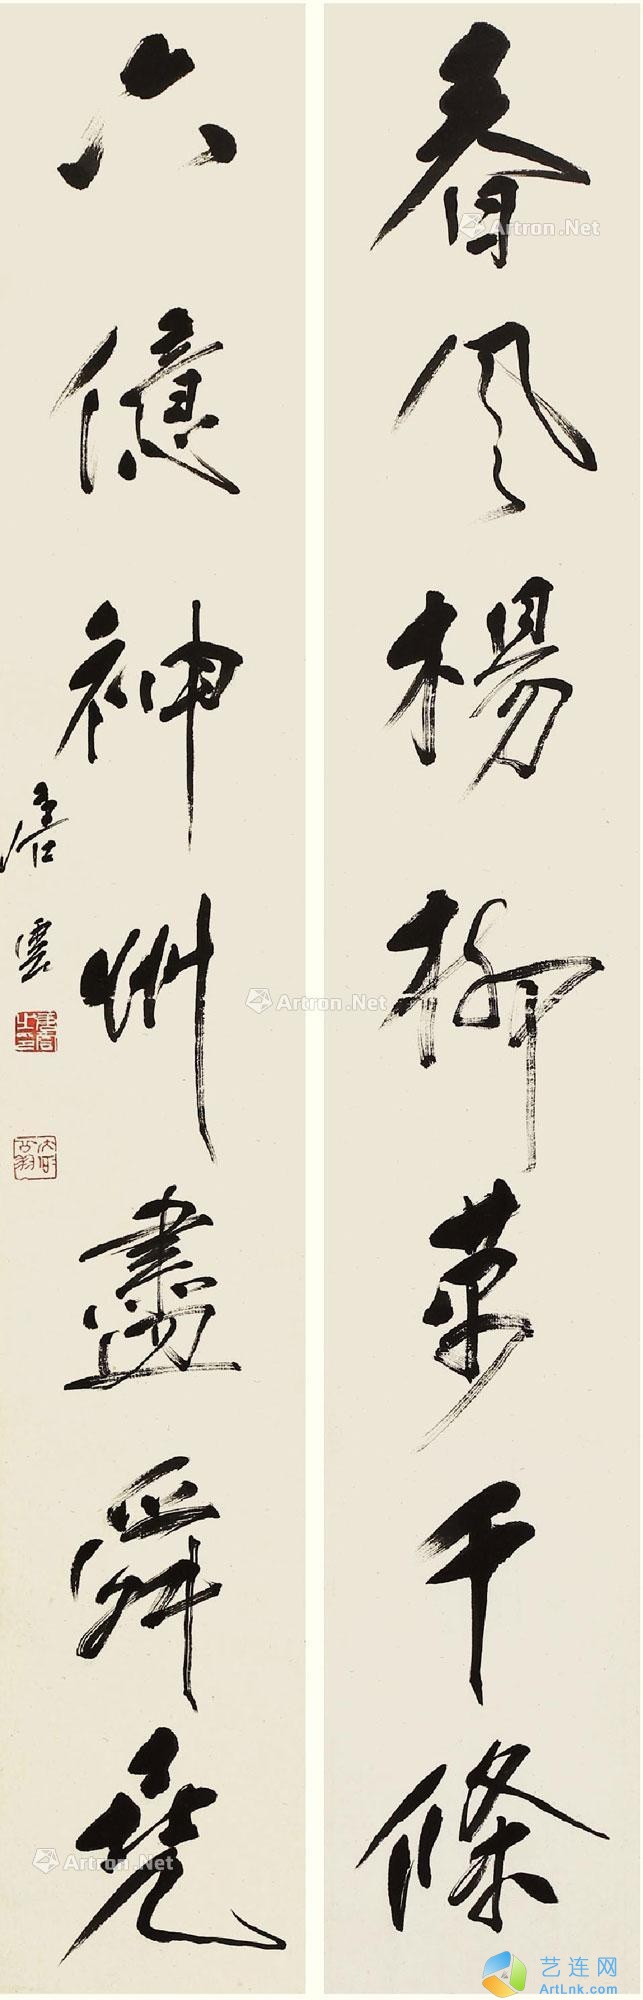 春風楊柳萬千條
六億神州盡舜堯
唐雲
Artron.Net
Artron.Net
Artron.Net
艺连网
ArtLnk.com